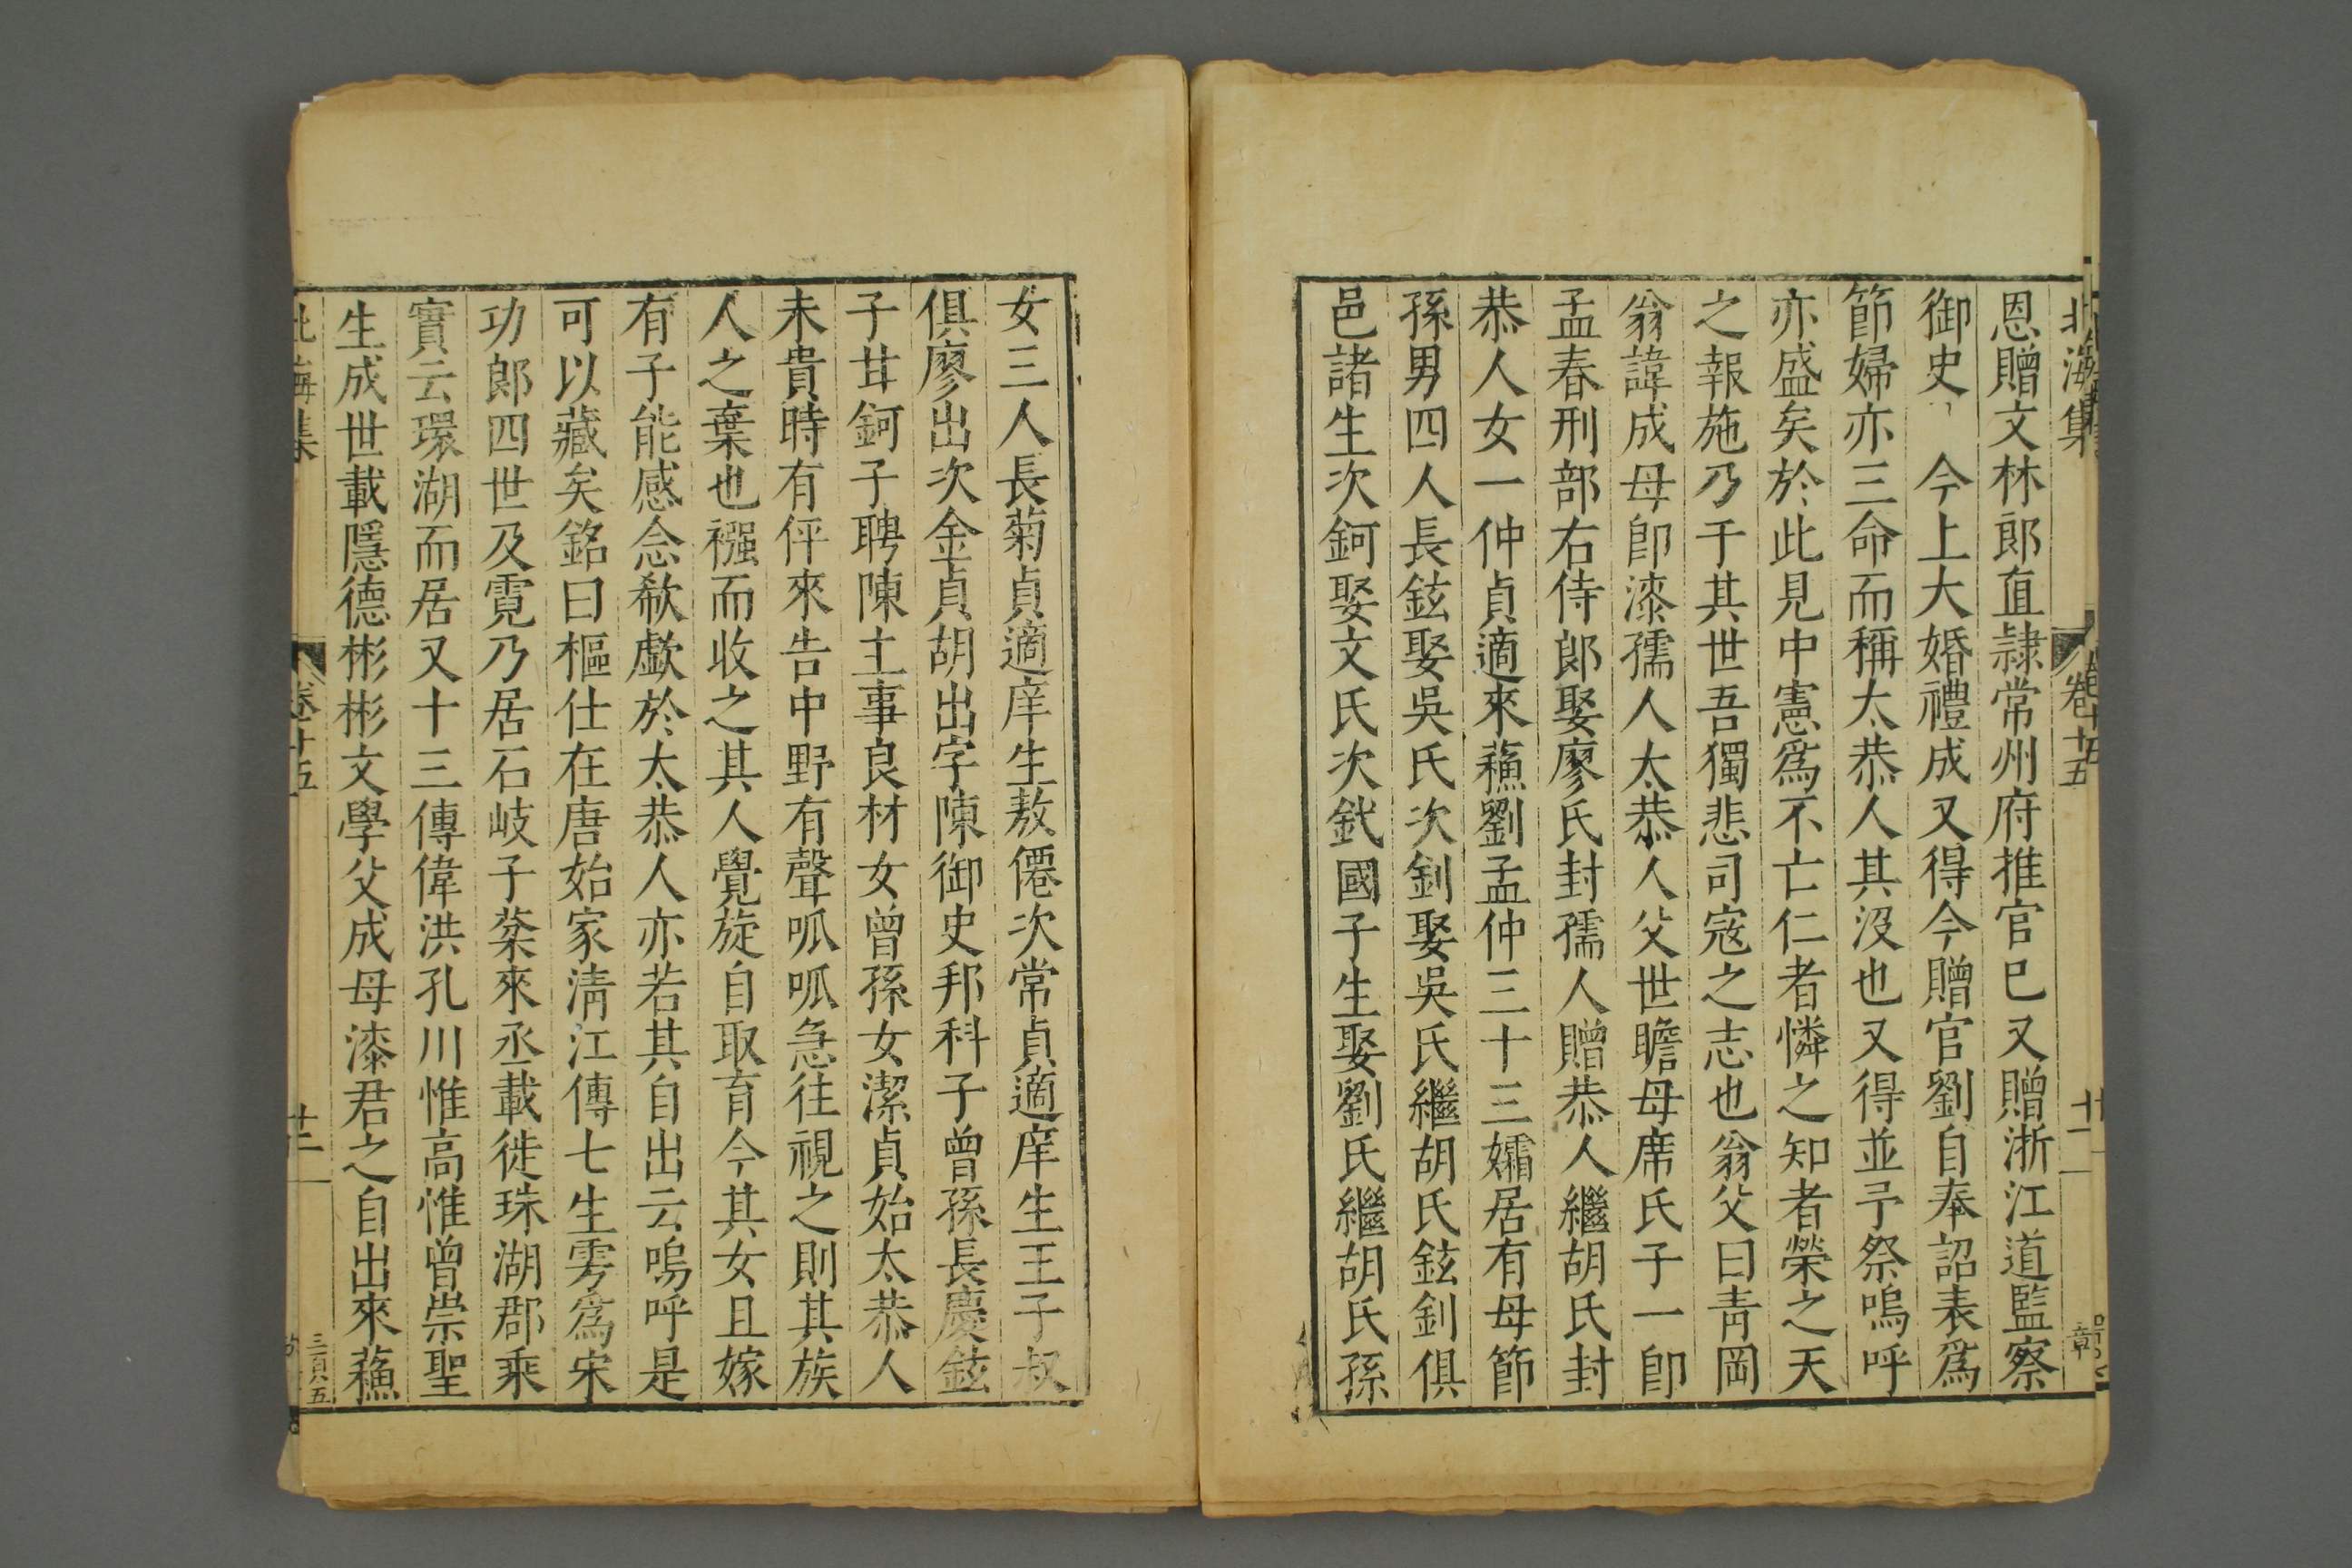 北海集
卷十五
十一
章
恩贈文林郎直隷常州府推官巳又贈浙江道監察
御史 今上大婚禮成又得今贈官劉自奉詔表爲
節婦亦三命而稱太恭人其沒也又得並予祭嗚呼
亦盛矣於此見中憲爲不亡仁者憐之知者榮之天
之報施乃于其世吾獨悲司寇之志也翁父曰青岡
翁諱成母卽漆孺人太恭人父世瞻母席氏子一卽
孟春刑部右侍郎娶廖氏封孺人贈恭人繼胡氏封
恭人女一仲貞適來蘓劉孟仲三十三孀居有母節
孫男四人長鉉娶吳氏次釗娶吳氏繼胡氏鉉釗俱
邑諸生次鈳娶文氏次釴國子生娶劉氏繼胡氏孫
女三人長菊貞適庠生敖僊次常貞適庠生王子叔
俱廖出次金貞胡出字陳御史邦科子曾孫長慶鉉
子廿鈳子聘陳主事良材女曾孫女潔貞始太恭人
未貴時有伻來告中野有聲呱呱急往視之則其族
人之棄也襁而收之其人覺旋自取育今其女且嫁
有子能感念欷歔於太恭人亦若其自出云嗚呼是
可以藏矣銘曰樞仕在唐始家淸江傳七生雱爲宋
功郎四世及霓乃居石岐子棻來丞載徙珠湖郡乘
實云環湖而居又十三傳偉洪孔川惟高惟曾崇聖
生成世載隱德彬彬文學父成母漆君之自出來蘓
北海集
卷十五
十二
三百五